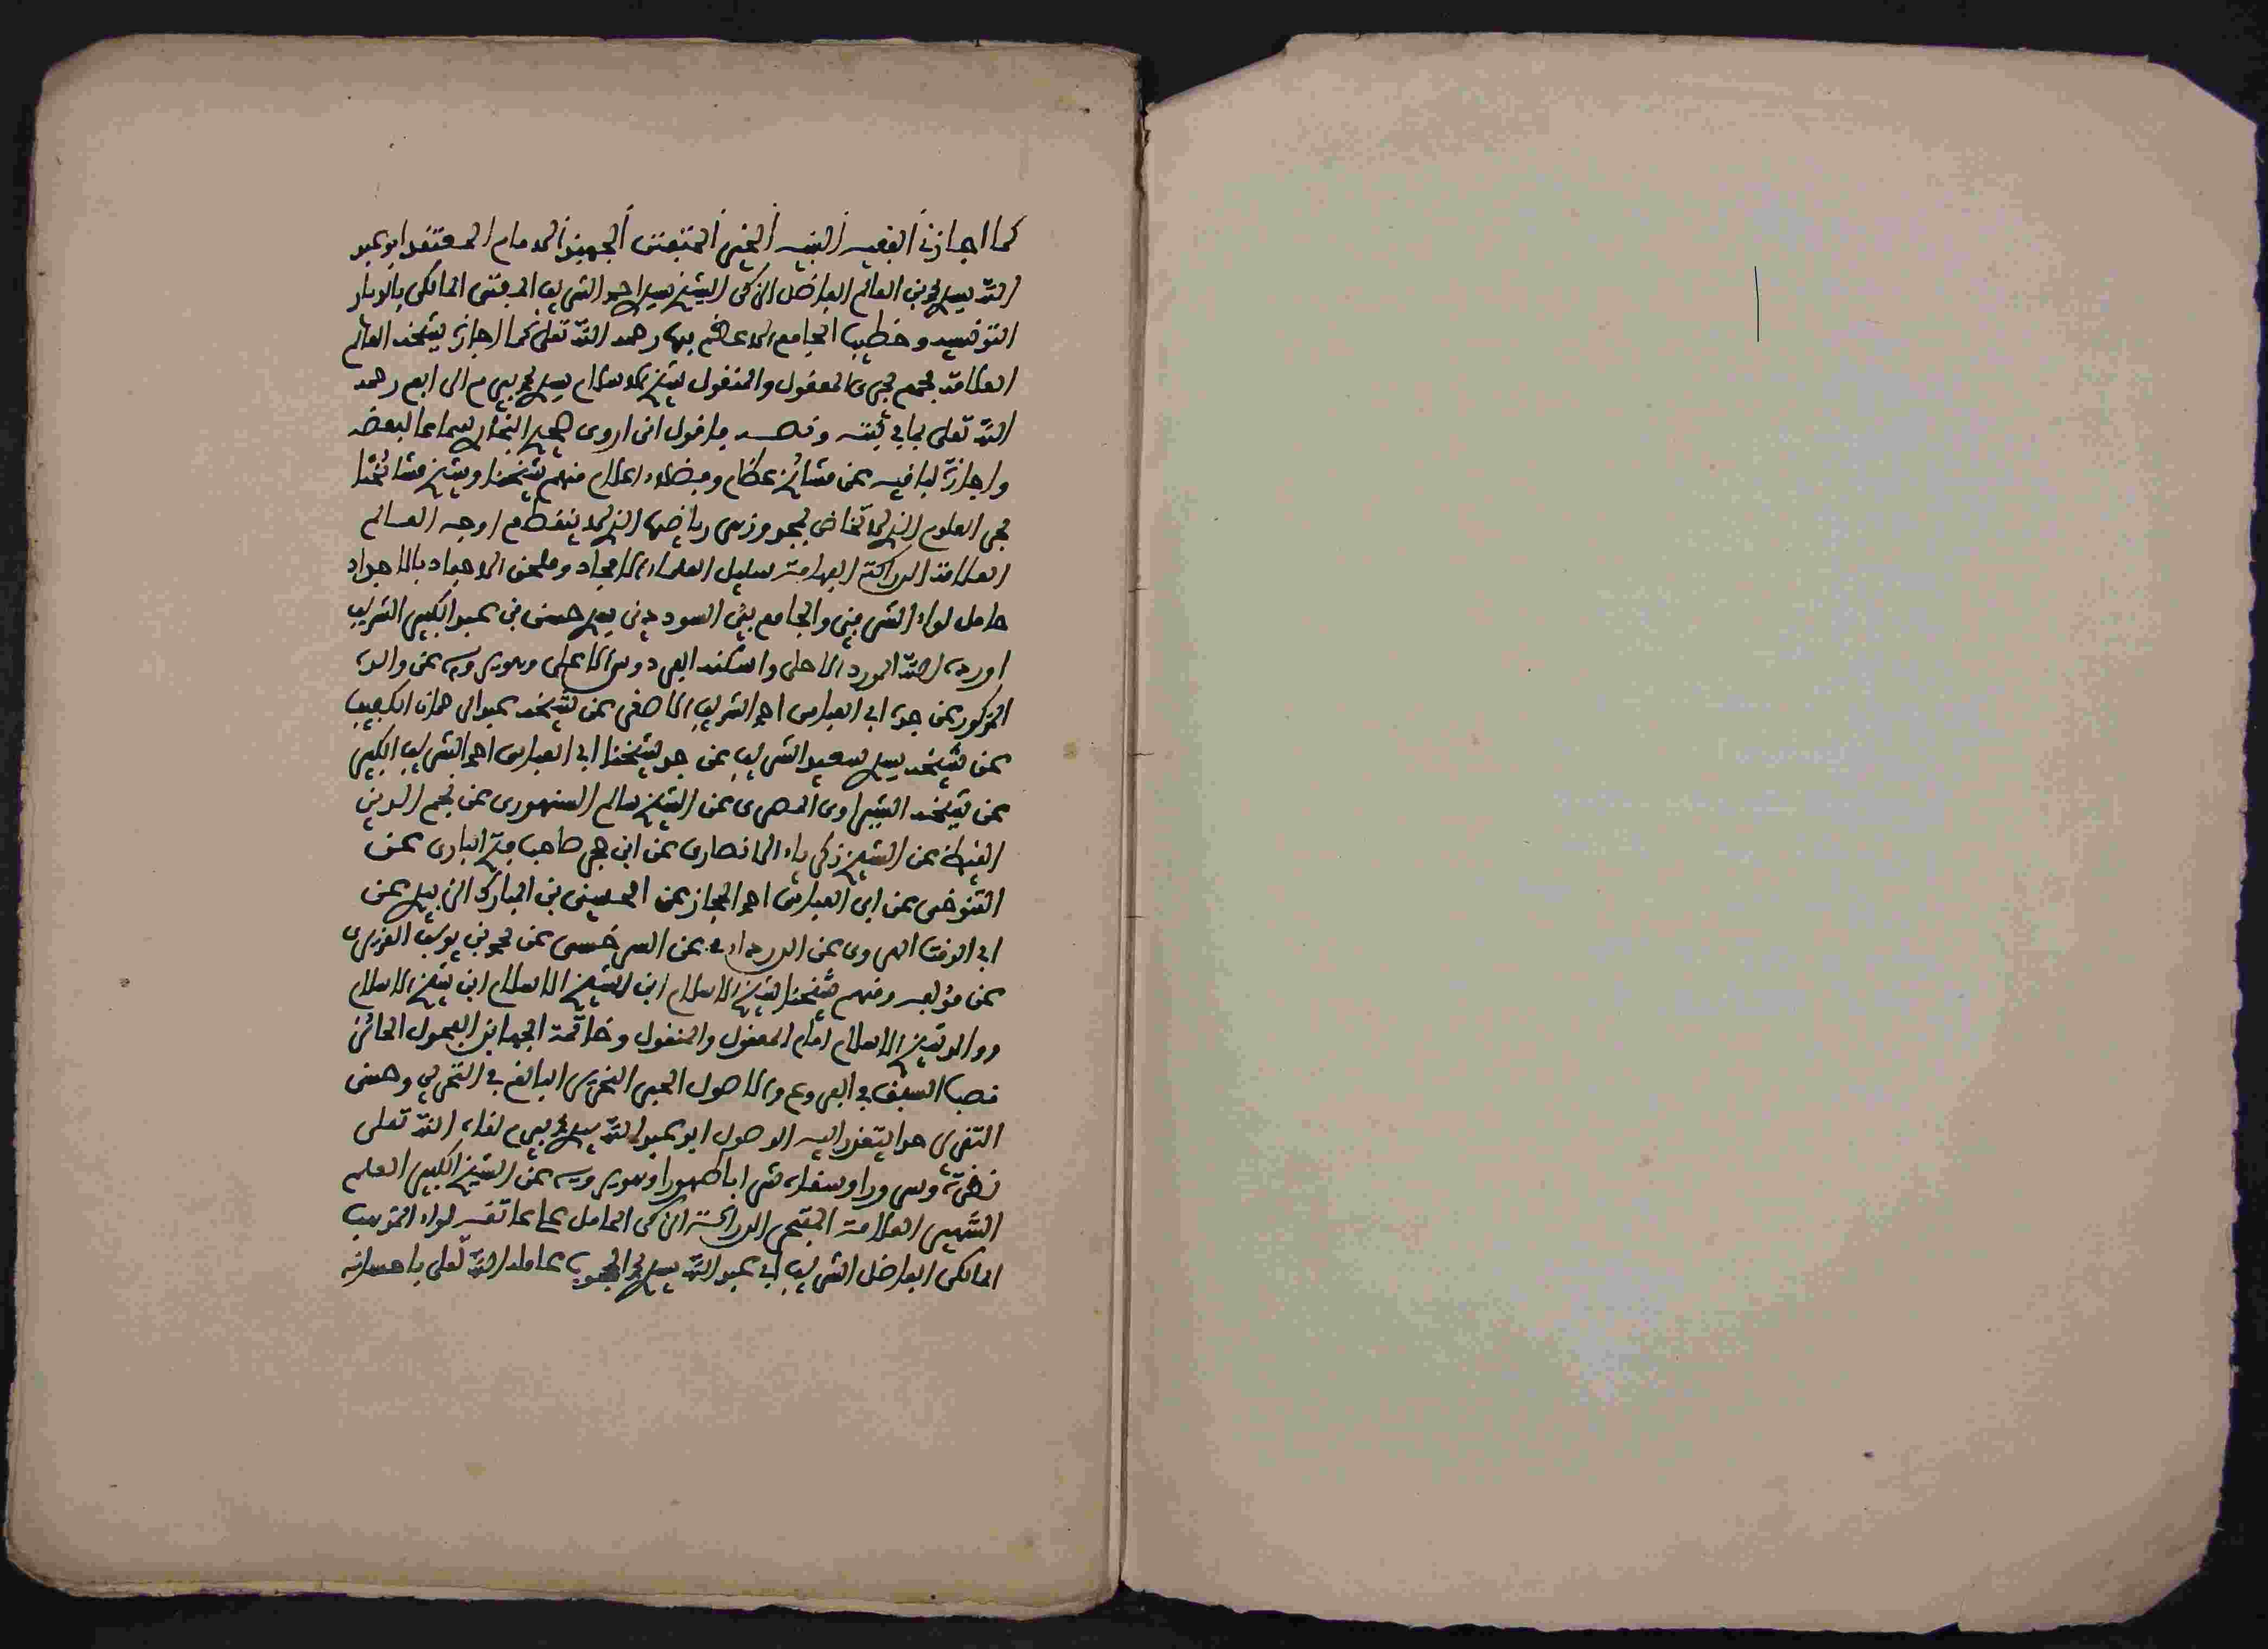 كما اجازنى الفقيه النبيه الخير المتفنن الجهبذ الامام المعتقد ابو عبد
الله سيدي محمد بن العالم الفاضل الزكى الشيخ سيدي احمد الشريف المفتى المالكى بالديار
التونسيه وخطيب الجامع الاعظم بها رحمه الله تعلى كما اجازه شيخه العالم
العلامة مجمع بحرى المعقول والمنقول شيخ الاسلام سيدي محمد بيرم الرابع رحمه
الله تعلى بما في ثبته ونصه فاقول انى اروى صحيح البخارى سماعا لبعضه
واجازة لباقيه عن مشائخ عظام وفضلاء اعلام منهم شيخنا وشيخ مشائخنا
بحر العلوم الذى لا تخاض لججه وزهر رياضها الذى لا ينقطع ارجه العالم
العلامة الدراكة الفهامة سليل العلماء الامجاد وملحق الاحفاد بالاجداد
حامل لواء الشرفين والجامع بين السوددين سيدي حسن بن عبد الكبير الشريف
اورده الله المورد الاحلى واسكنه الفردوس الاعلى وهو يرويه عن والده
المذكور عن جده ابي العباس احمد الشريف الاصغر عن شيخه عبد الرحمان الكفيف
عن شيخه سيدي سعيد الشريف عن جد شيخنا ابي العباس احمد الشريف الكبير
عن شيخه الشبراوى المصرى عن الشيخ سالم السنهورى عن نجم الدين
الغيطى عن الشيخ زكرياء الانصارى عن ابن حجر صاحب فتح البارى عن
التنوخى عن ابى العباس احمد الحجار عن الحسين بن المبارك الزبيدي عن
ابي الوقت الهروى عن الداودى عن السرخسى عن محمد بن يوسف الفربرى
عن مؤلفه ومنهم شيخنا شيخ الاسلام ابن الشيخ الاسلام ابن شيخ الاسلام
ووالد شيخ الاسلام امام المعقول والمنقول وخاتمة الجهابذ الفحول الحائز
قصب السبق في الفروع والاصول الحبر النحرير البالغ في التحرير وحسن
التقرير حدا يتعذر اليه الوصول ابو عبد الله سيدي محمد بيرم لقاه الله تعلى
نضرة وسرورا وسقاه شرابا طهورا وهو يرويه عن الشيخ الكبير العلم
الشهير العلامة المفتى الدراكة الزكى الحامل على عاتقه لواء المذهب
المالكى الفاضل الشريف ابي عبد الله سيدي محمد المحجوب عامله الله تعلى باحسانه